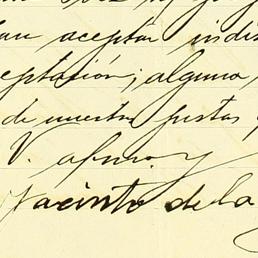 aceptar
eptación; alguna
de nuestra justas
V. afmo. y
Jacinto de la